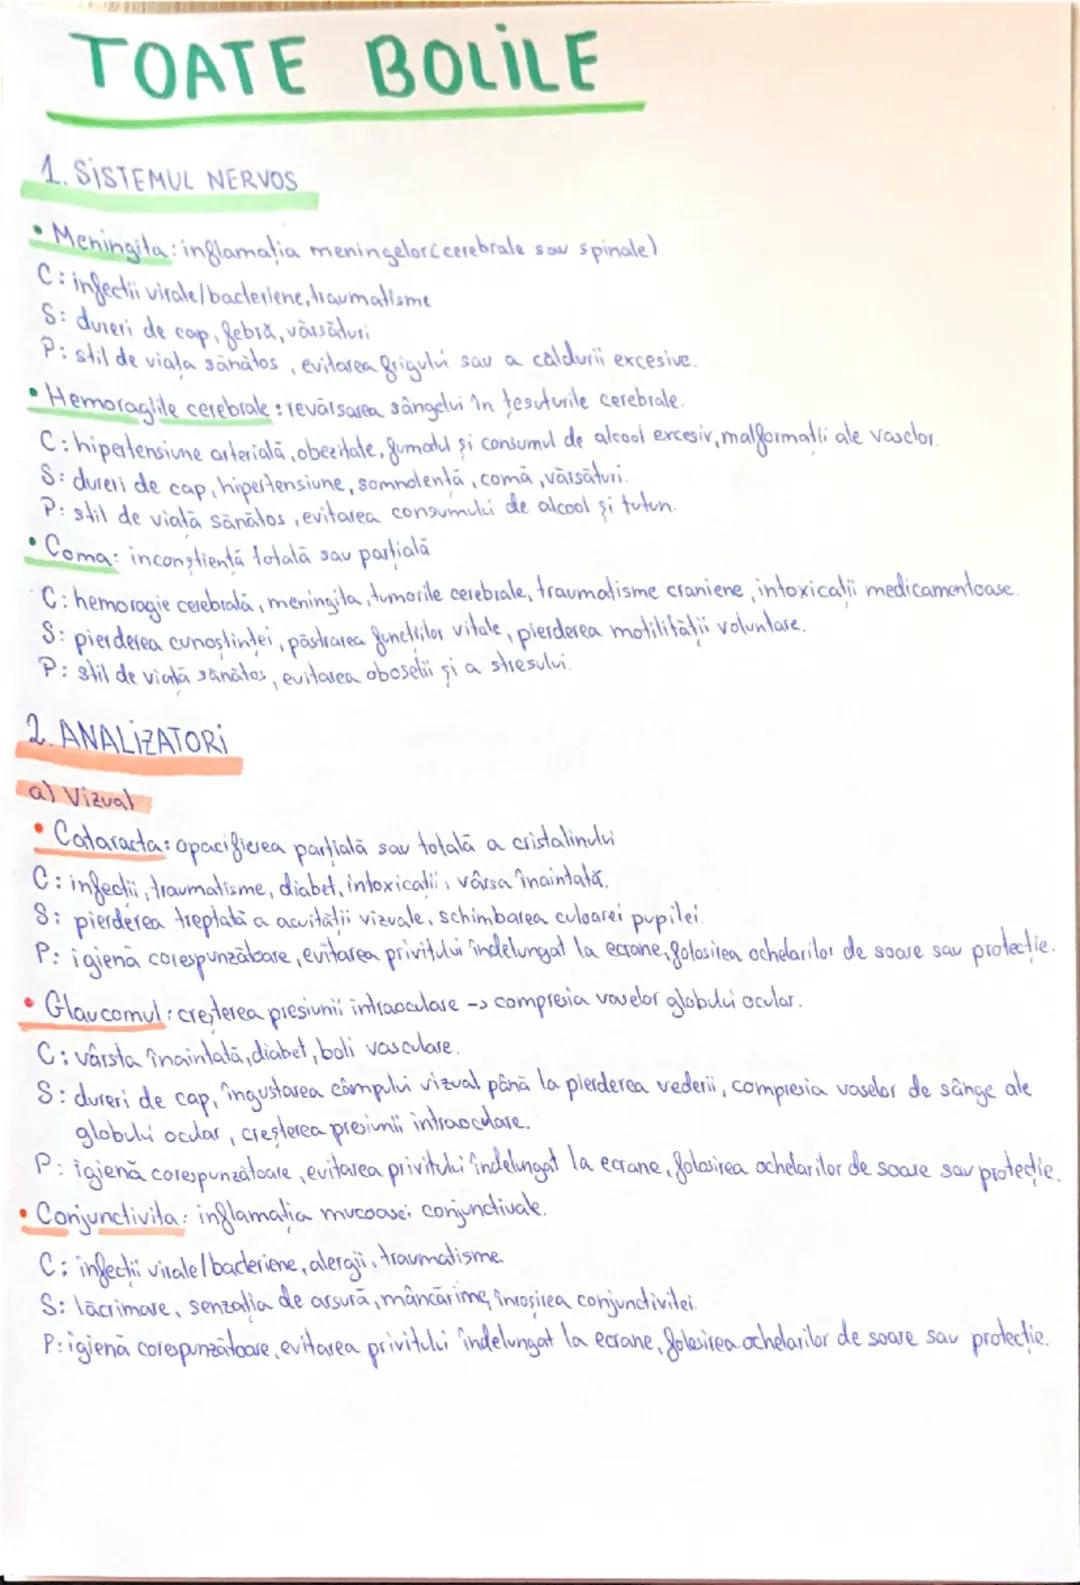 TOATE BOLILE
1. SISTEMUL NERVOS
• Meningita: inflamația meningelor(cerebrale sau spinale)
C: infectii virale/bacteriene, traumatisme
S: dureri de cap, febră, vărsături
P: stil de viața sănătos, evitarea frigului sau a căldurii excesive.
• Hemoragiile cerebrale: revărsarea sângelui în țesuturile cerebrale.
C: hipertensiune arterială, obezitate, fumatul și consumul de alcool excesiv, malformatii ale vaselor.
S: dureri de cap, hipertensiune, somnolență, comă, vărsături.
P: stil de viață sănătos, evitarea consumului de alcool și tutun.
• Coma: inconștiență totală sau parțială
C: hemoragie cerebrală, meningita, tumorile cerebrale, traumatisme craniene, intoxicații medicamentoase.
S: pierderea cunoștinței, păstrarea funcțiilor vitale, pierderea motilității voluntare.
P: stil de viață sănătos, evitarea oboselii și a stresului.
2. ANALIZATORI
a) Vizual
• Cataracta: opacifierea parțială sau totală a cristalinului
C: infecții, traumatisme, diabet, intoxicații, vârsa înaintată.
S: pierderea treptată a acuității vizuale, schimbarea culoarei pupilei.
P: igienă corespunzătoare, evitarea privitului îndelungat la ecrane, folosirea ochelarilor de soare sau protecție.
• Glaucomul: creșterea presiunii intraoculare -> compresia vaselor globului ocular.
C: vârsta înaintată, diabet, boli vasculare.
S: dureri de cap, îngustarea câmpului vizual până la pierderea vederii, compresia vaselor de sânge ale
globului ocular, creșterea presiunii intraoculare.
P: igienă corespunzătoare, evitarea privitului îndelungat la ecrane, folosirea ochelarilor de soare sau protecție.
• Conjunctivita: inflamația mucoasei conjunctivale.
C: infecții virale/bacteriene, alergii, traumatisme.
S: lăcrimare, senzația de arsură, mâncărime, înroșirea conjunctivitei.
P: igienă corespunzătoare, evitarea privitului îndelungat la ecrane, folosirea ochelarilor de soare sau protecție.